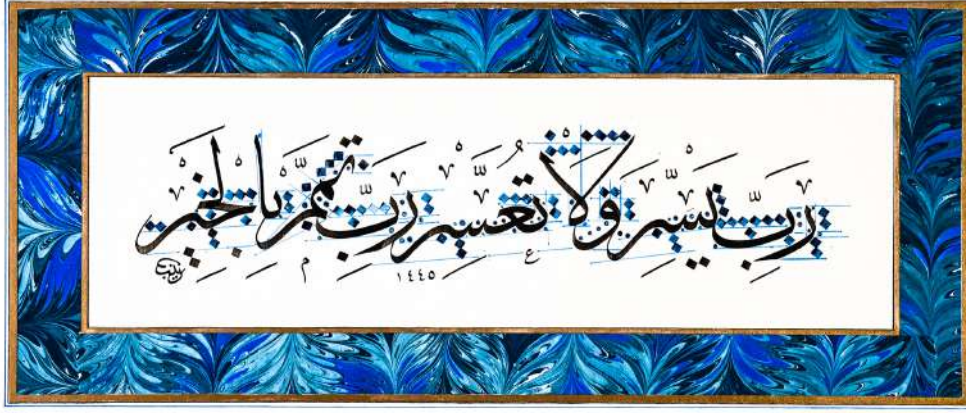 رَبِّ يَسِّرْ وَلَا تُعَسِّرْ رَبِّ تَمِّمْ بِالْخَيْرِ
١٤٤٥